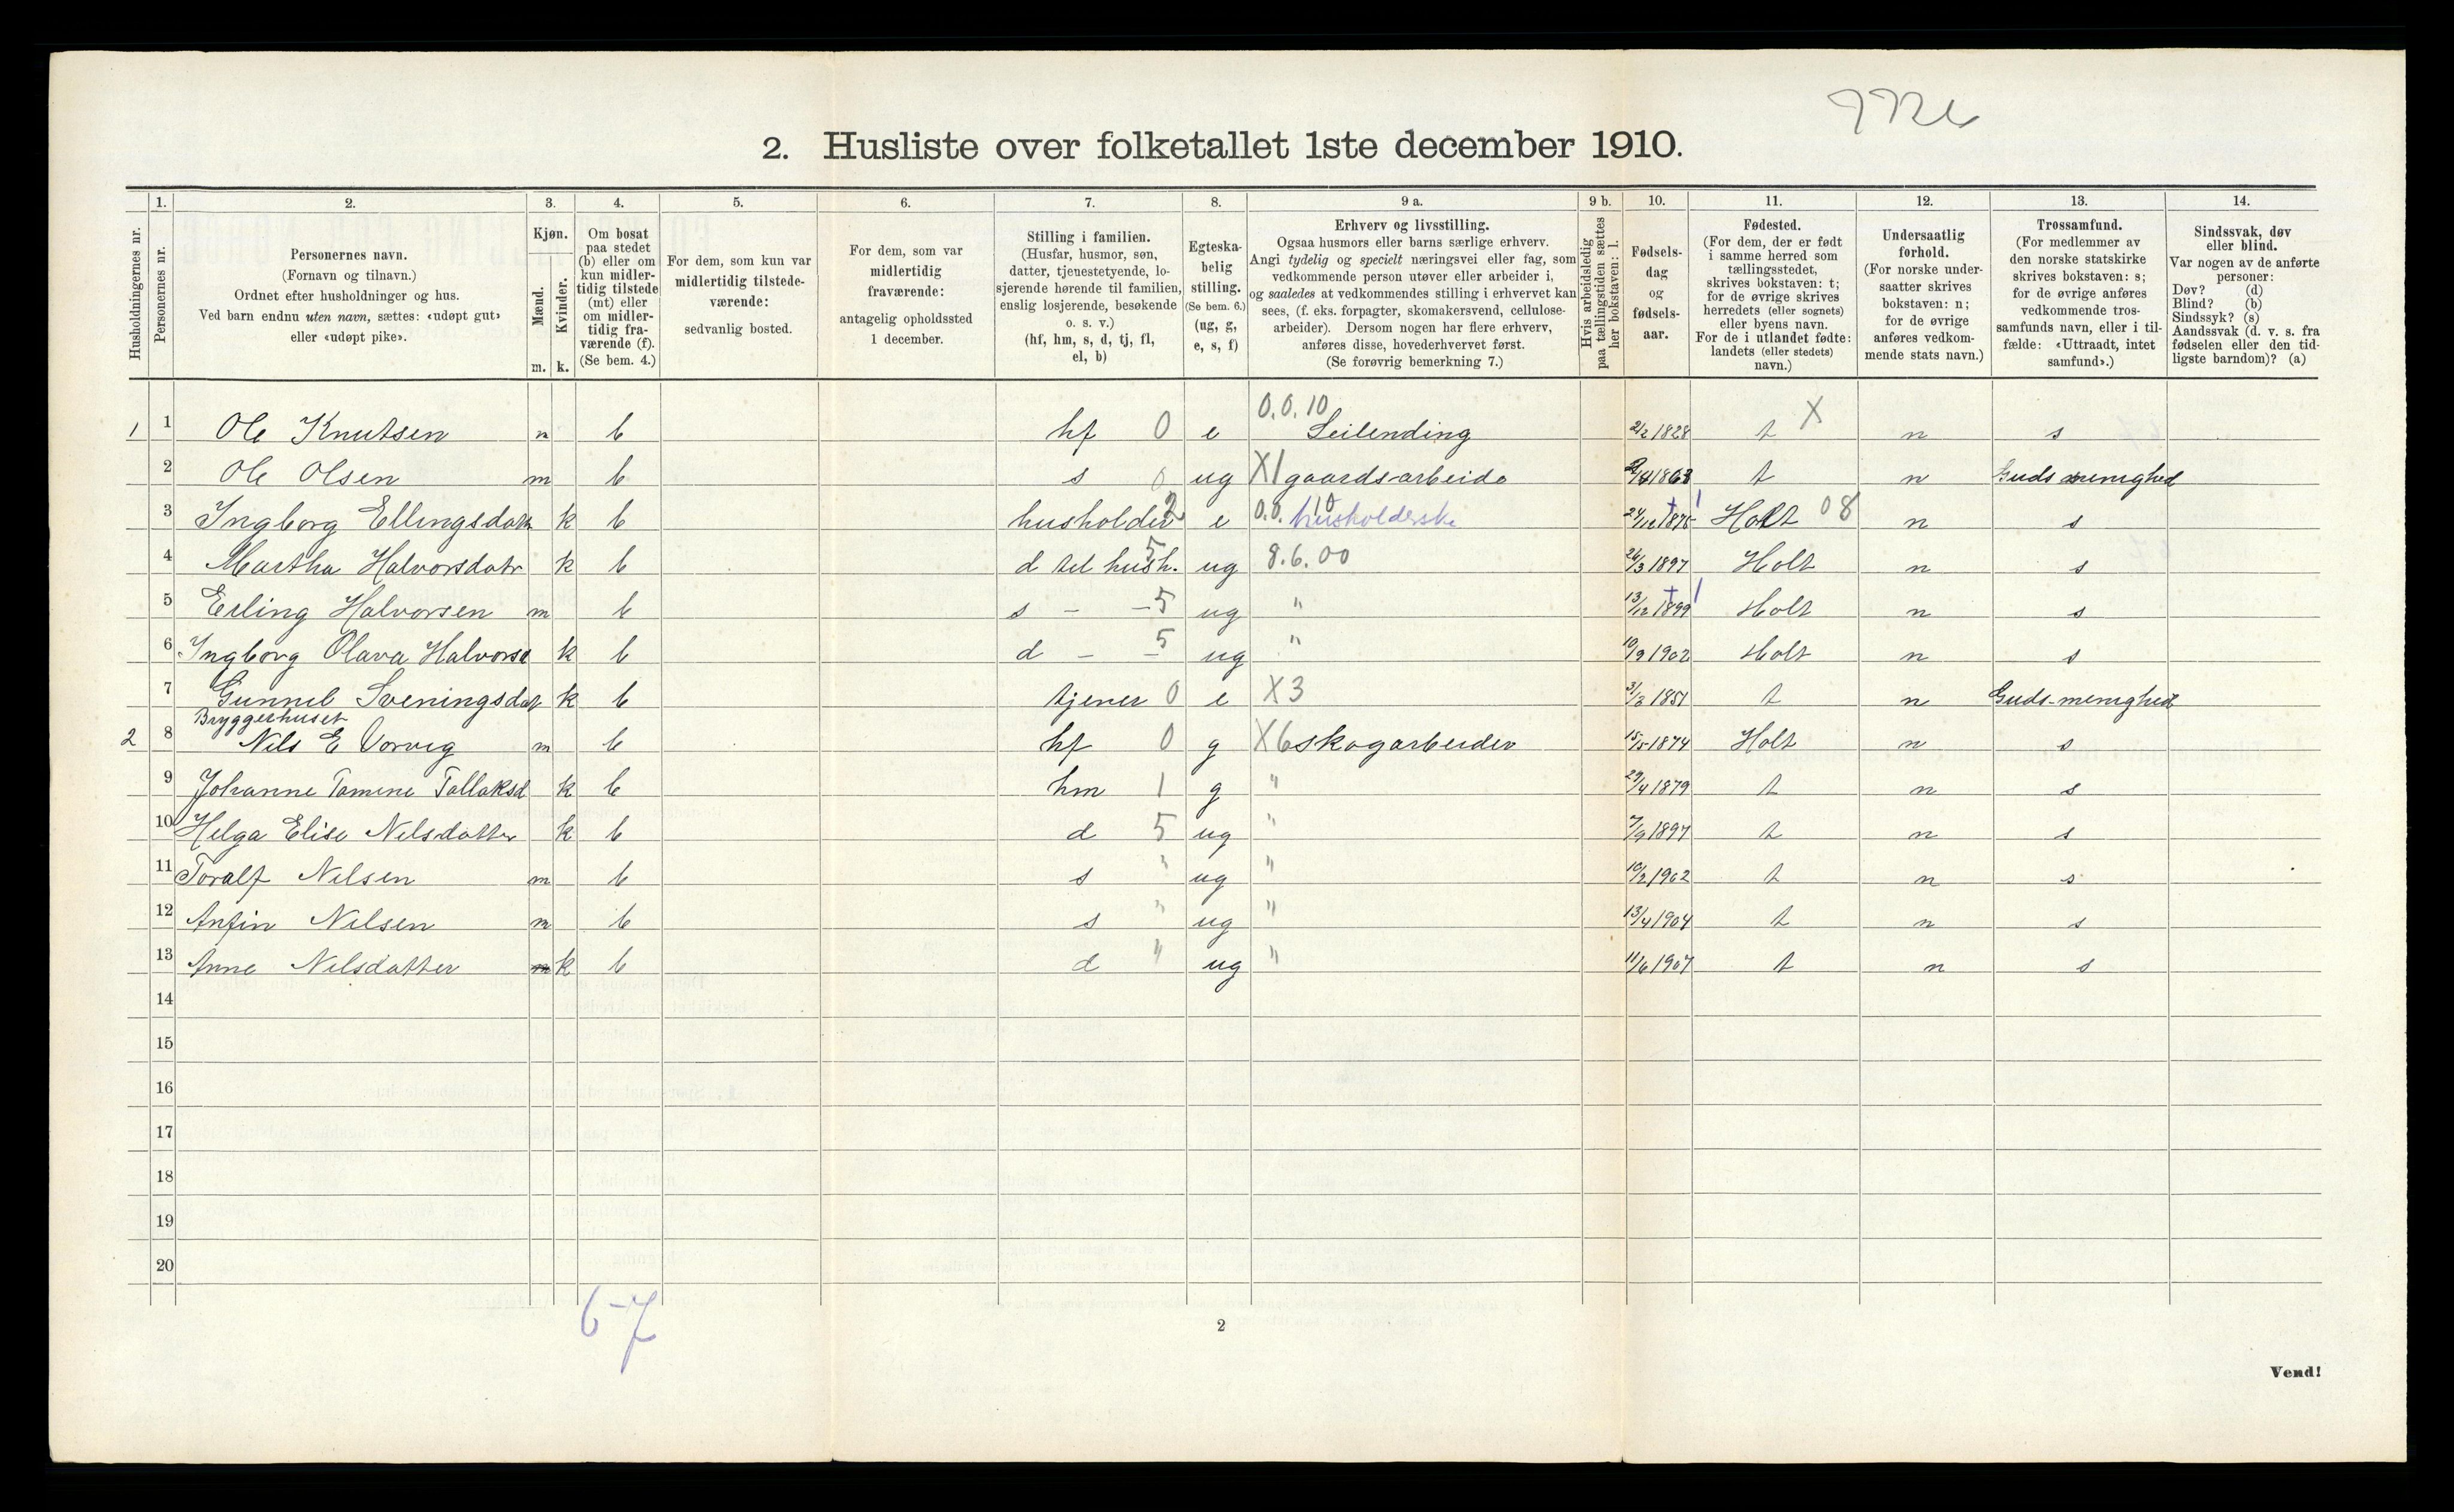 2. Husliste over folketallet 1ste december 1910.
Husholdningernes nr.
1. Personernes nr.
2. Personernes navn. (Fornavn og tilnavn.) Ordnet efter husholdninger og hus. Ved barn endnu uten navn, sættes: «udøpt gut» eller «udøpt pike».
3. Kjøn. Mænd. m. Kvinder. k.
4. Om bosat paa stedet (b) eller om kun midlertidig tilstede (mt) eller om midlertidig fraværende (f). (Se bem. 4.)
5. For dem, som kun var midlertidig tilstedeværende: sedvanlig bosted.
6. For dem, som var midlertidig fraværende: antagelig opholdssted 1 december.
7. Stilling i familien. (Husfar, husmor, søn, datter, tjenestetyende, losjerende hørende til familien, enslig losjerende, besøkende o. s. v.) (hf, hm, s, d, tj, fl, el, b)
8. Egteskabelig stilling. (Se bem. 6.) (ug, g, e, s, f)
9 a. Erhverv og livsstilling. Ogsaa husmors eller barns særlige erhverv. Angi tydelig og specielt næringsvei eller fag, som vedkommende person utøver eller arbeider i, og saaledes at vedkommendes stilling i erhvervet kan sees, (f. eks. forpagter, skomakersvend, cellulosearbeider). Dersom nogen har flere erhverv, anføres disse, hovederhvervet først. (Se forøvrig bemerkning 7.)
9 b. Hvis arbeidsledig paa tællingstiden sættes her bokstaven: l.
10. Fødselsdag og fødselsaar.
11. Fødested. (For dem, der er født i samme herred som tællingsstedet, skrives bokstaven: t; for de øvrige skrives herredets (eller sognets) eller byens navn. For de i utlandet fødte: landets (eller stedets) navn.)
12. Undersaatlig forhold. (For norske undersaatter skrives bokstaven: n; for de øvrige anføres vedkommende stats navn.)
13. Trossamfund. (For medlemmer av den norske statskirke skrives bokstaven: s; for de øvrige anføres vedkommende trossamfunds navn, eller i tilfælde: «Uttraadt, intet samfund».)
14. Sindssvak, døv eller blind. Var nogen av de anførte personer: Døv? (d) Blind? (b) Sindssyk? (s) Aandssvak (d. v. s. fra fødselen eller den tidligste barndom)? (a)
1 1 Ole Knutsen m b hf 0 e 0.0.10 Leilending 2/2 1828 t X n s
2 Ole Olsen m b s 0 ug X1 gaardsarbeide 1868 t n Guds menighed
3 Ingborg Ellingsdatr k b husholder 2 e 0.0.10 husholderske 24/12 1875 Holt 08 n s
4 Martha Halvorsdatr k b d til hush. 5 ug 8.6.00 26/3 1897 Holt n s
5 Erling Halvorsen m b s - - 5 ug " 13/12 1899 Holt n s
6 Ingborg Olava Halvorsd k b d - - 5 ug " 10/9 1902 Holt n s
7 Gunnil Sveningsdat k b tjener 0 e X3 31/3 1851 t n Guds-menighed
Bryggerhuset
2 8 Nils E Vorvig m b hf 0 g X6 skogarbeider 15/5 1874 Holt n s
9 Johanne Tomine Tallaksd k b hm 1 g " 29/4 1879 t n s
10 Helga Elise Nilsdatter k b d 5 ug " 7/9 1897 t n s
11 Toralf Nilsen m b s " ug " 10/2 1902 t n s
12 Anfin Nilsen m b s " ug " 13/4 1904 t n s
13 Anne Nilsdatter k b d " ug " 11/6 1907 t n s
14
15
16
17
18
19
20
6-7
2
Vend!